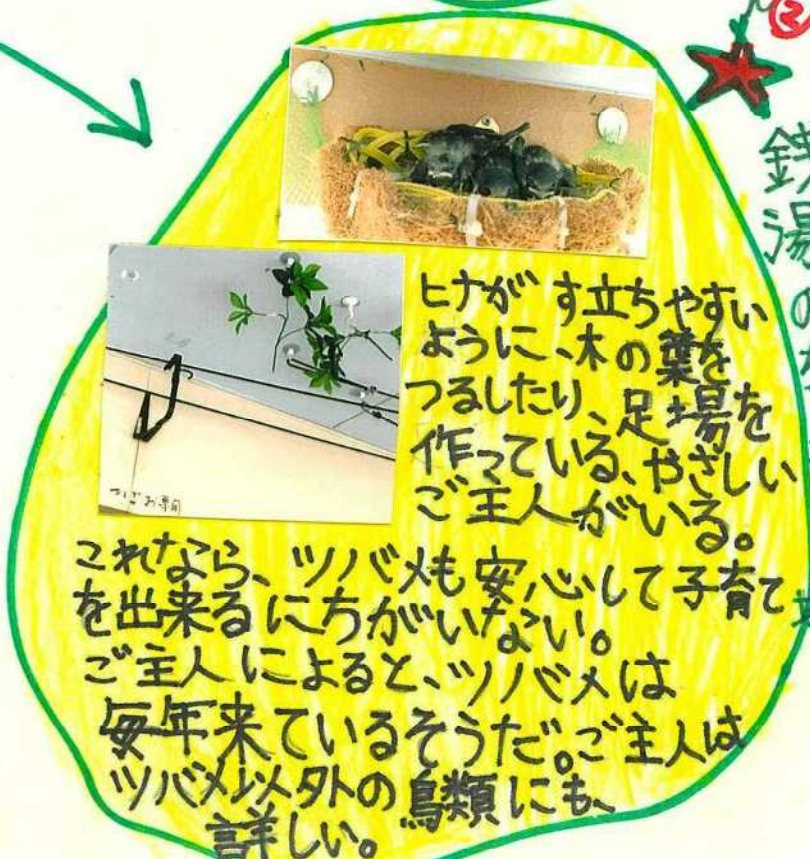 ②
鉄
湯
の
ヒナが す立ちやすい
ように、木の葉を
つるしたり、足場を
作っている、やさしい
ご主人がいる。
これなら、ツバメも安心して子育て
を出来るにちがいない。
ご主人によると、ツバメは
毎年来ているそうだ。ご主人は
ツバメ以外の鳥類にも、
詳しい。